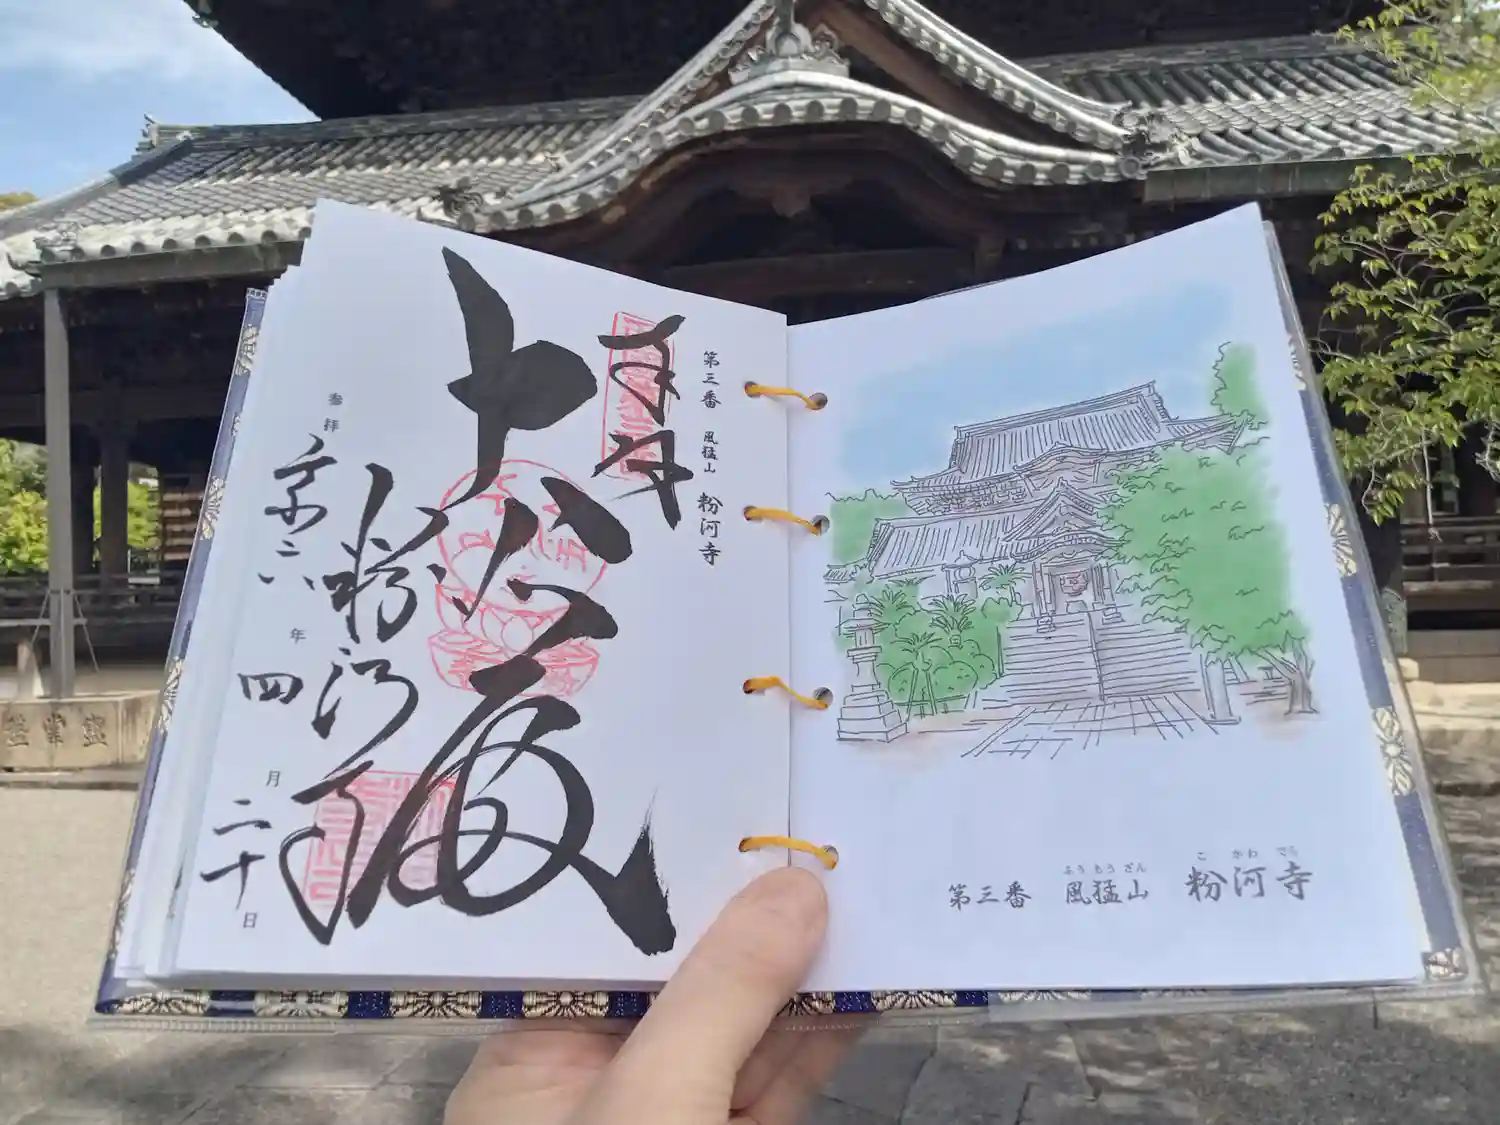 第三番 風猛山 粉河寺
奉拝
大悲殿
粉河寺
参拝 令和六年四月二十日
ふうもうざん こかわでら
第三番 風猛山 粉河寺